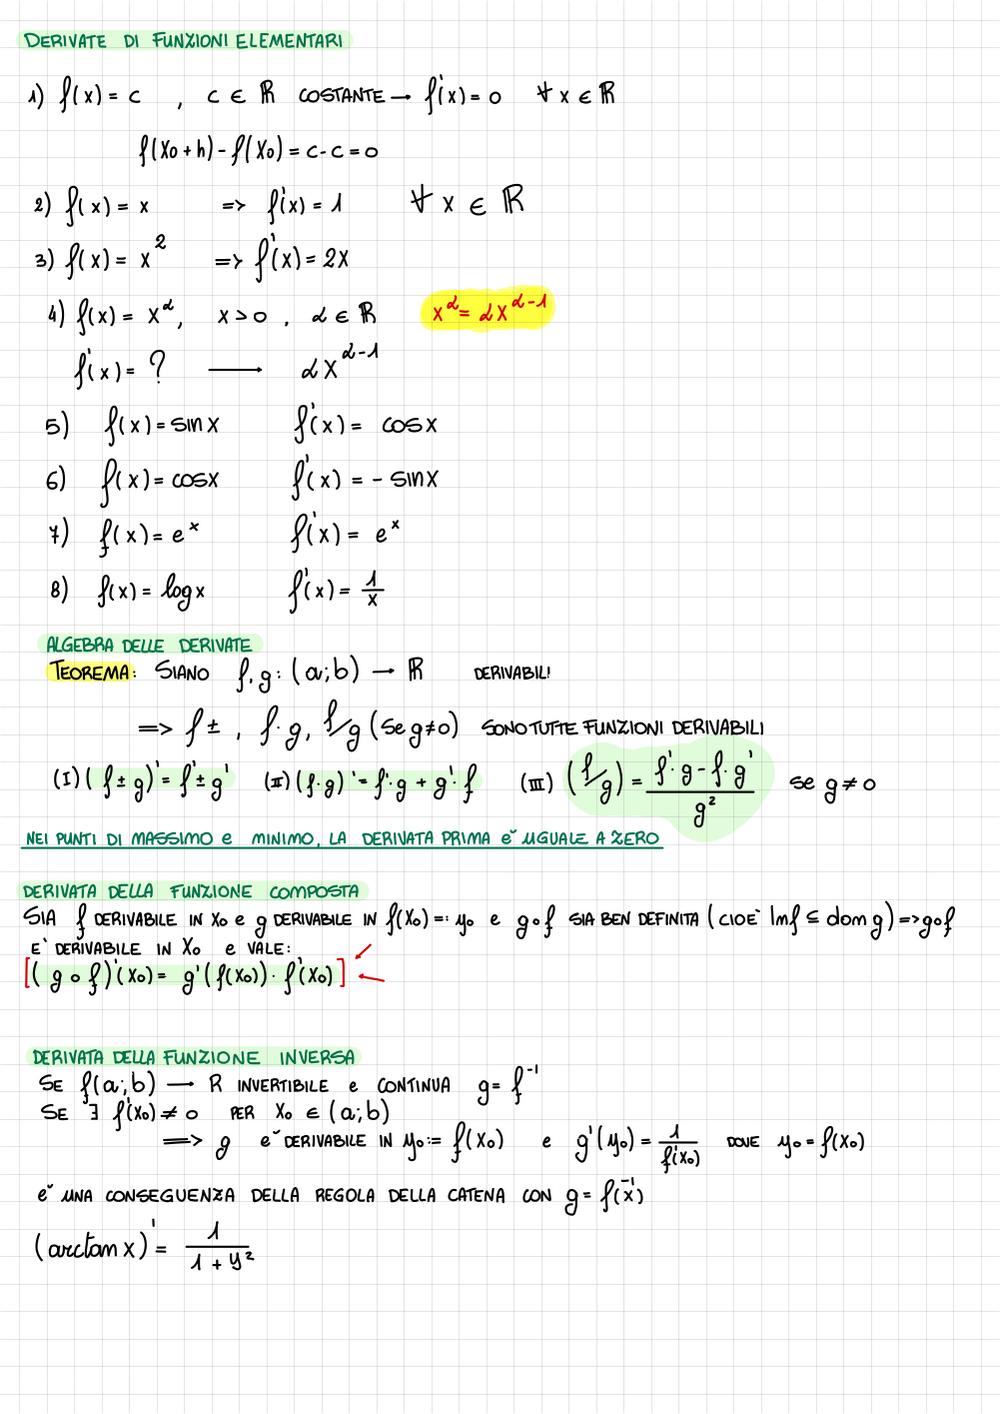 DERIVATE DI FUNZIONI ELEMENTARI
1) f(x) = c , c ∈ ℝ COSTANTE → f'(x) = 0 ∀ x ∈ ℝ
f(x0 + h) - f(x0) = c - c = 0
2) f(x) = x => f'(x) = 1 ∀ x ∈ ℝ
3) f(x) = x² => f'(x) = 2x
4) f(x) = x^α, x > 0 , α ∈ ℝ x^α = αx^(α-1)
f'(x) = ? — αx^(α-1)
5) f(x) = sin x f'(x) = cos x
6) f(x) = cos x f'(x) = - sin x
7) f(x) = e^x f'(x) = e^x
8) f(x) = log x f'(x) = 1/x
ALGEBRA DELLE DERIVATE
TEOREMA: SIANO f, g : (a; b) → ℝ DERIVABILI
=> f ± , f · g, f/g (se g ≠ 0) SONO TUTTE FUNZIONI DERIVABILI
(I) (f ± g)' = f' ± g' (II) (f · g)' = f' · g + g' · f (III) (f/g) = (f' · g - f · g')/g² se g ≠ 0
NEI PUNTI DI MASSIMO e MINIMO, LA DERIVATA PRIMA e˘ UGUALE A ZERO
DERIVATA DELLA FUNZIONE COMPOSTA
SIA f DERIVABILE IN x0 e g DERIVABILE IN f(x0) =: y0 e g∘f SIA BEN DEFINITA (CIOE` Im f ⊆ dom g) => g∘f
E` DERIVABILE IN x0 e VALE:
[(g ∘ f)'(x0) = g'(f(x0)) · f'(x0)]
DERIVATA DELLA FUNZIONE INVERSA
SE f(a; b) → R INVERTIBILE e CONTINUA g = f^-1
SE ∃ f'(x0) ≠ 0 PER x0 ∈ (a; b)
=> g e˘ DERIVABILE IN y0 := f(x0) e g'(y0) = 1/f'(x0) DOVE y0 = f(x0)
e˘ UNA CONSEGUENZA DELLA REGOLA DELLA CATENA CON g = f^-1(x)
(arctan x)' = 1/(1 + y²)